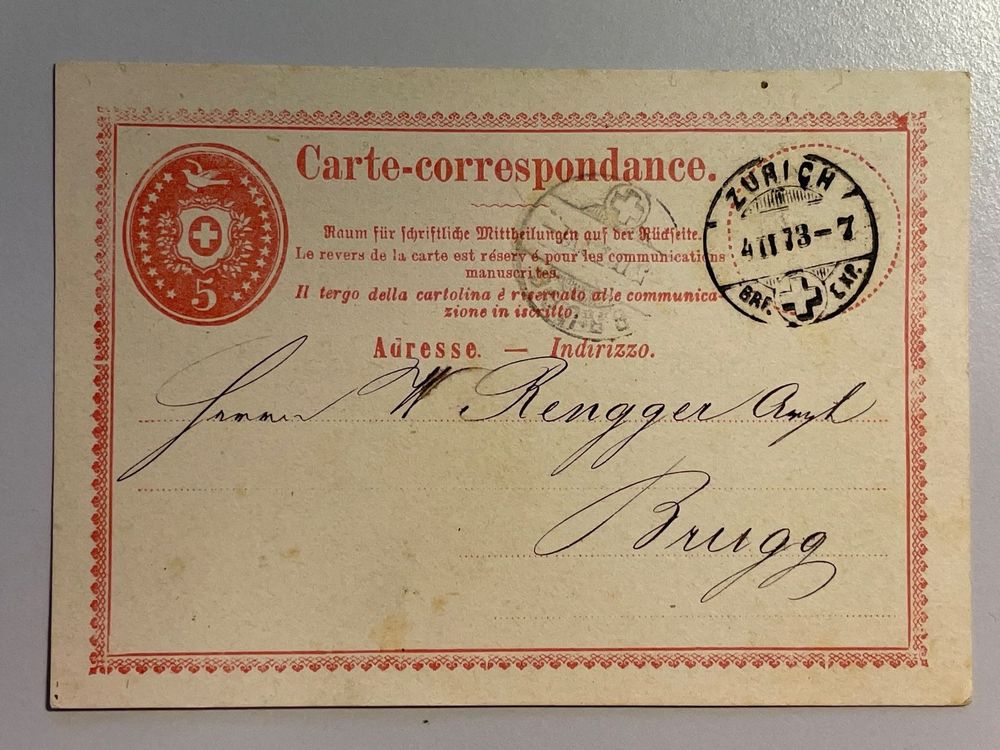 Carte-correspondance.
5
Raum für schriftliche Mittheilungen auf der Rückseite.
Le revers de la carte est réservé pour les communications
manuscrites.
Il tergo della cartolina è riservato alle communica-
zione in iscritto.
Adresse. — Indirizzo.
ZÜRICH
4 II 73 – 7
BRF. EXP.
Herrn W Rengger Arzt
Brugg